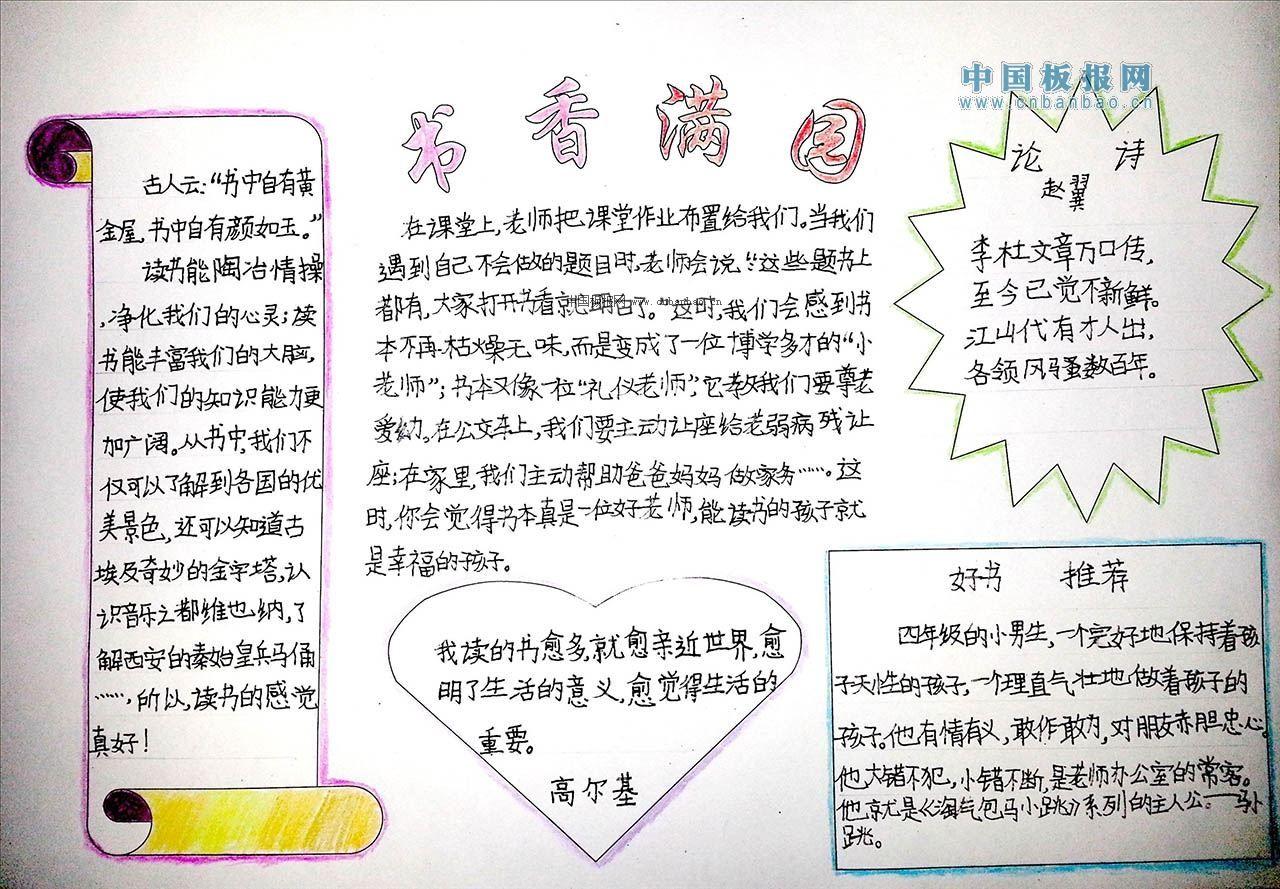 中国板报网
www.cnbanbao.cn
书香满园
古人云:“书中自有黄
金屋,书中自有颜如玉。”
读书能陶冶情操
,净化我们的心灵;读
书能丰富我们的大脑,
使我们的知识能力更
加广阔。从书中,我们不
仅可以了解到各国的优
美景色,还可以知道古
埃及奇妙的金字塔,认
识音乐之都维也纳,了
解西安的秦始皇兵马俑
……,所以,读书的感觉
真好!
在课堂上,老师把课堂作业布置给我们。当我们
遇到自己不会做的题目时,老师会说:“这些题书上
都有,大家打开书看就明白了。”这时,我们会感到书
本不再枯燥无味,而是变成了一位博学多才的“小
老师”;书本又像一位“礼仪老师”,它教我们要尊老
爱幼。在公交车上,我们要主动让座给老弱病残让
座;在家里,我们主动帮助爸爸妈妈做家务……。这
时,你会觉得书本真是一位好老师,能读书的孩子就
是幸福的孩子。
中国板报网 www.cnbanbao.cn
我读的书愈多,就愈亲近世界,愈
明了生活的意义,愈觉得生活的
重要。
高尔基
论诗
赵翼
李杜文章万口传,
至今已觉不新鲜。
江山代有才人出,
各领风骚数百年。
好书 推荐
四年级的小男生,一个完好地保持着孩
子天性的孩子,一个理直气壮地做着孩子的
孩子。他有情有义,敢作敢为,对朋友赤胆忠心。
他大错不犯,小错不断,是老师办公室的常客。
他就是《淘气包马小跳》系列的主人公——马小
跳。